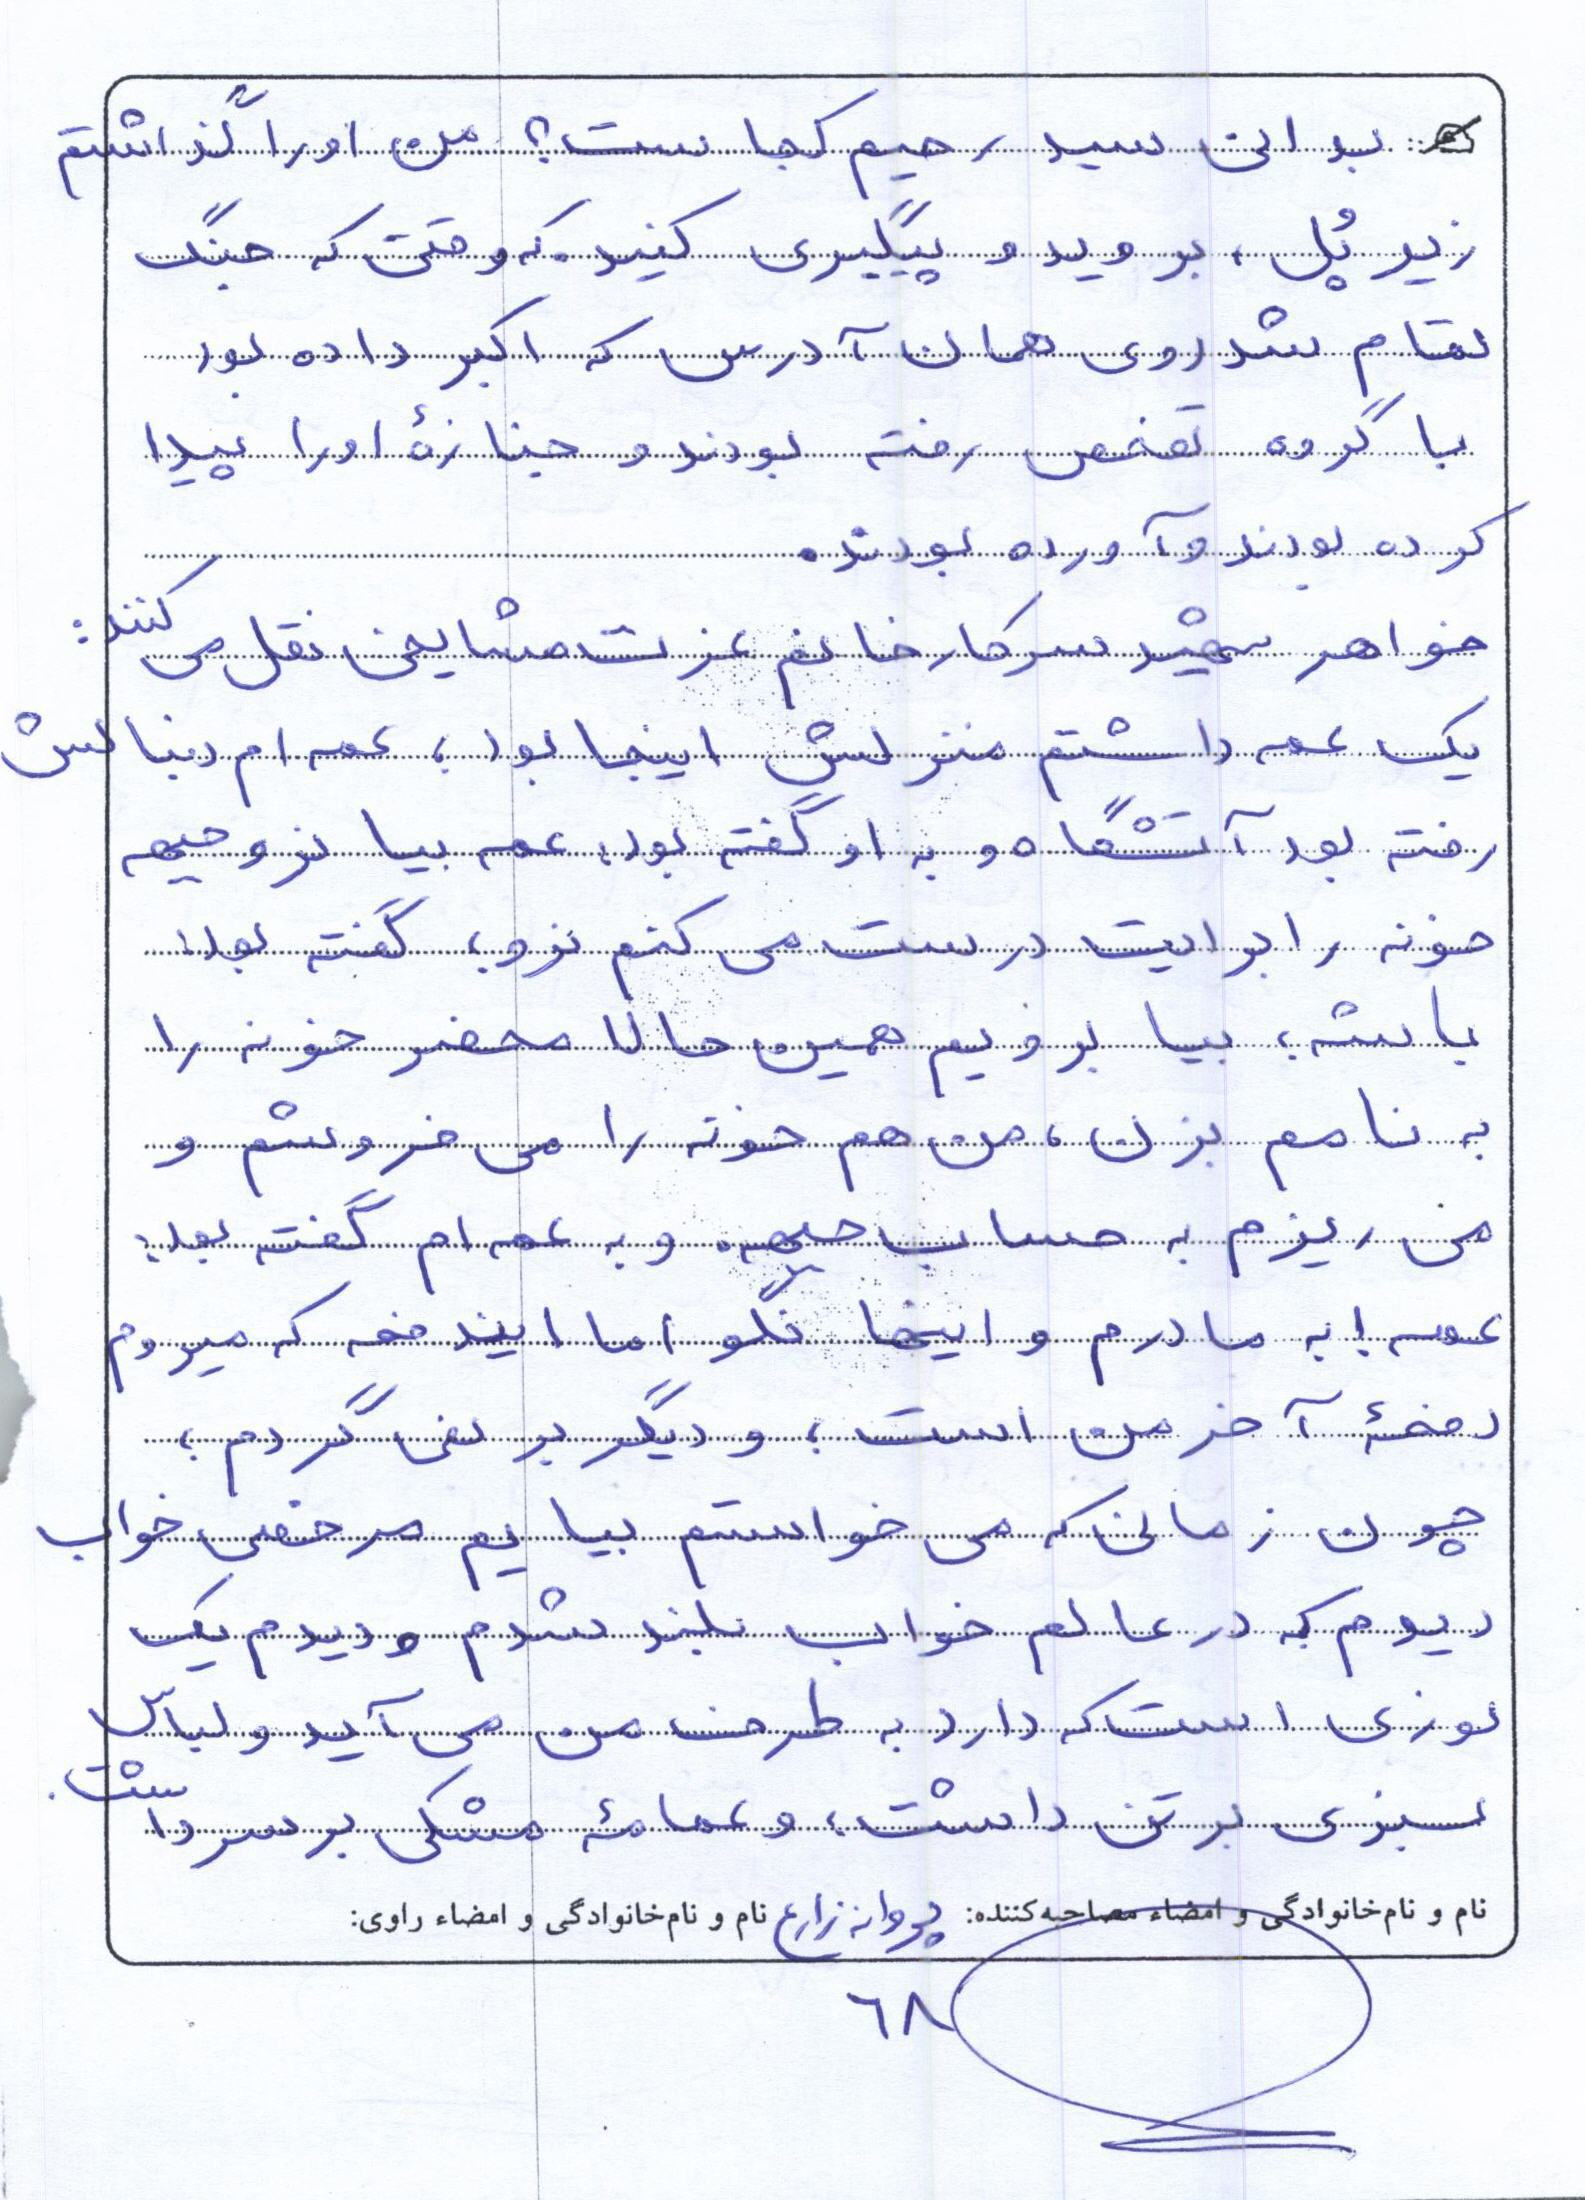 بدانی سید رحیم کجاست؟ من او را گذاشتم
زیر پُل، بروید و پیگیری کنید. که وقتی که جنگ
تمام شد روی همان آدرس که اکبر داده بود
با گروه تفحص رفته بودند و جنازهٔ او را پیدا
کرده بودند و آورده بودند.
خواهر شهید سرکار خانم عزت مشایخی نقل می کنند:
یک عمه داشتم منزلش اینجا بود؛ عمه ام دنبالش
رفته بود آتشگاه و به او گفته بود: عمه بیا نرو جبهه
خونه را برایت درست می کنم نرو، گفته بود:
باشه؛ بیا برویم همین حالا محضر خونه را
به نامم بزن، من هم خونه را می فروشم و
می ریزم به حساب جبهه. و به عمه ام گفته بود:
عمه! به مادرم و اینها نگو اما ایندفعه که میروم
دفعهٔ آخر من است؛ و دیگر بر نمی گردم؛
چون زمانی که می خواستم بیایم مرخصی خواب
دیدم که در عالم خواب بلند شدم و دیدم یک
نوری است که دارد به طرف من می آید و لباس
سبزی بر تن داشت، و عمامهٔ مشکی بر سر داشت.
نام و نام‌خانوادگی و امضاء مصاحبه‌کننده: پروانه زارع نام و نام‌خانوادگی و امضاء راوی:
٦٨